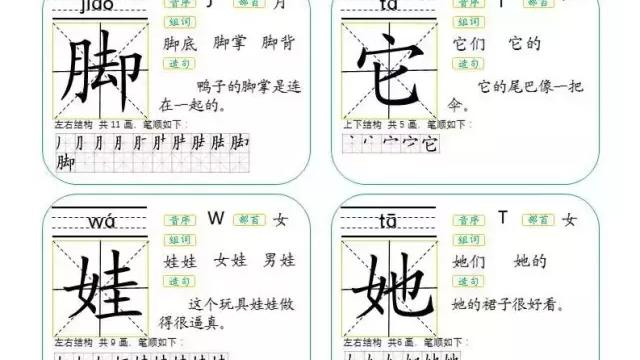 jiǎo
J
月
组词
脚底 脚掌 脚背
造句
鸭子的脚掌是连
在一起的。
脚
左右结构 共 11 画. 笔顺如下:
脚
tā
T
组词
它们 它的
造句
它的尾巴像一把
伞。
它
上下结构 共 5 画. 笔顺如下:
它
wá
音序 W 部首 女
组词
娃娃 女娃 男娃
造句
这个玩具娃娃做
得很逼真。
娃
左右结构 共 9 画. 笔顺如下:
tā
音序 T 部首 女
组词
她们 她的
造句
她的裙子很好看。
她
左右结构 共6 画. 笔顺如下: